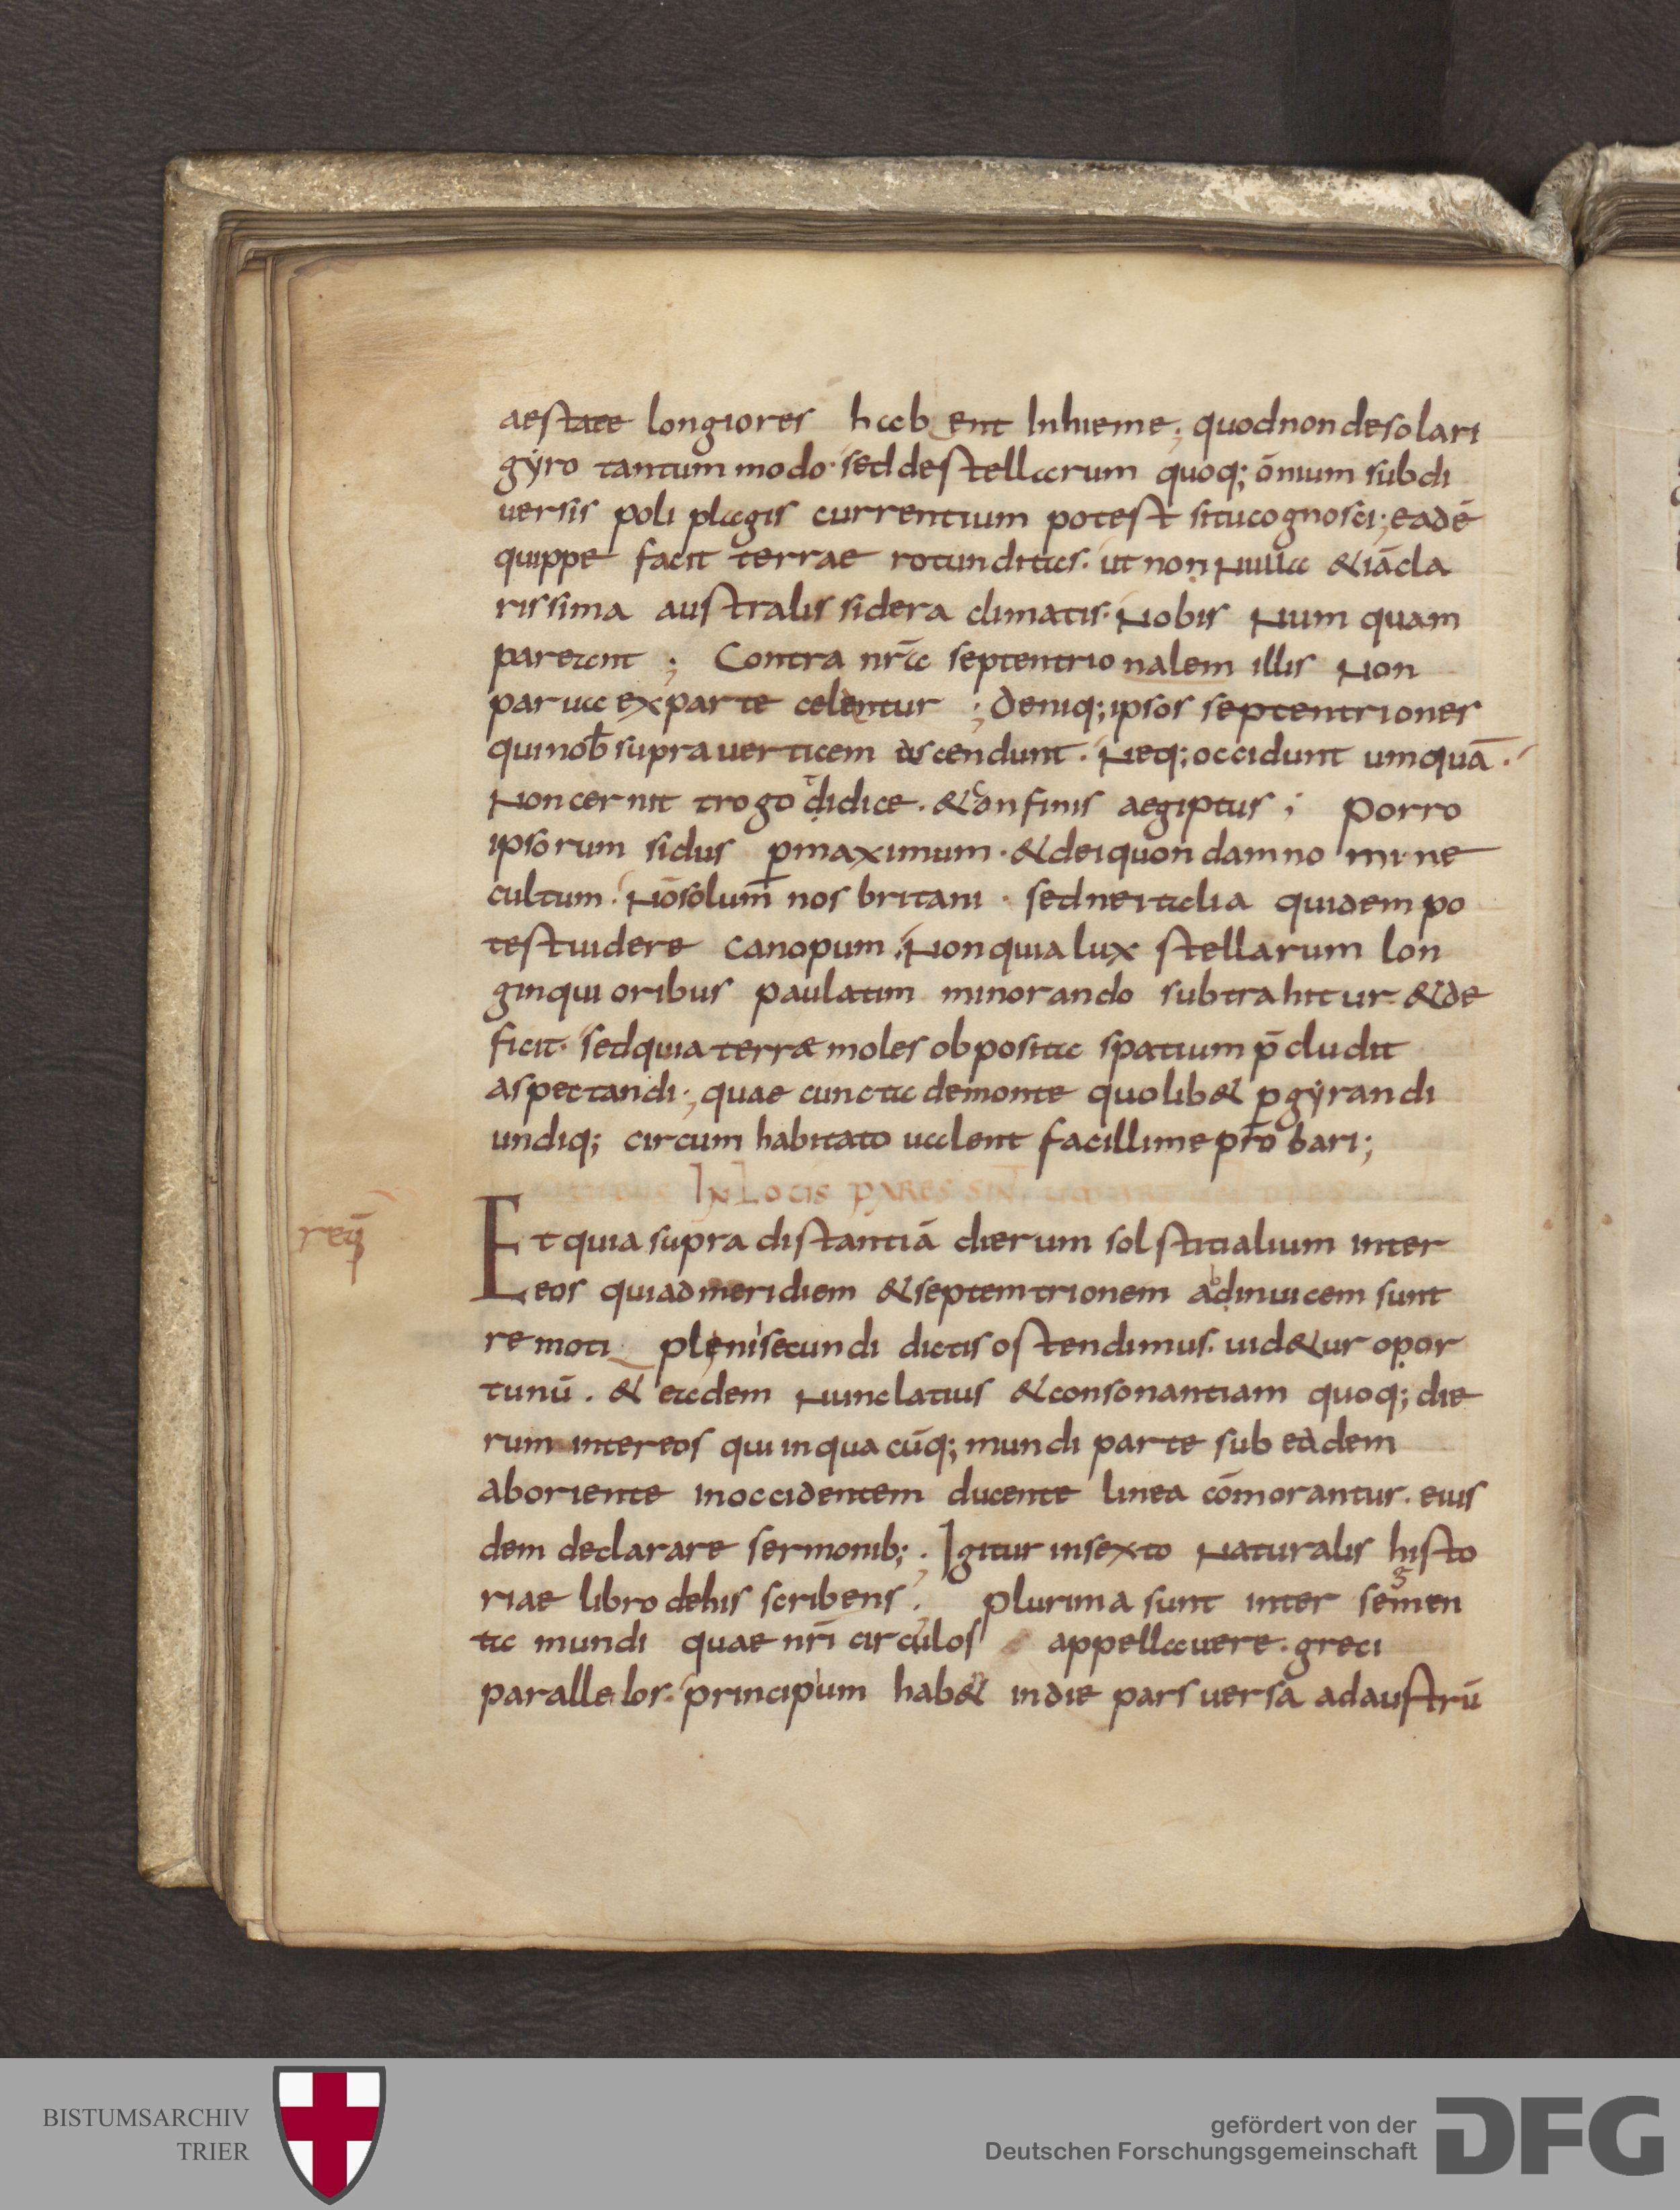 aestate longiores habent Inhieme; quodnondesolari
gyro tantummodo· seddestellarum quoq; ōnium subdi
uersis poli plagis currentium potest situcognosci; eadē
quippe facit terrae rotunditas. ut non Nulla &iācla
rissima australis sidera climatis. Nobis Numquam
pareant ; Contra nr̄a septentrionalem illis Non
parua exparte celentur ; deniq; ipsos septentriones
quinob̄ supra uerticem ascendunt. Neq; occidunt umquā.
Noncernit trogotdidice. &confinis aegiptus ; porro
ipsorum sidus pmaximum. &deiquondamnomine
cultum. Nōsolum̄ nos britani · sedneitalia quidem po
testuidere canopum. Nonquialux stellarum lon
ginquioribus paulatim minorando subtrahitur &de
ficit· sedquia terræ moles obposita spatium p̄cludit
aspectandi; quae cuncta demonte quolib& pgyrandi
undiq; circum habitato ualent facillime p̄robari;
INLOCIS PARES SIN̄
req̄
Etquia supra distantiā dierum solstitialium inter
eos quiadmeridiem &septemtrionem adinuicem sunt
remoti plenisecundi dictis ostendimus. uid&ur opor
tunū. & eadem Nunclatius &consonantiam quoq; die
rum intereos quiinquacūq; mundi parte sub eadem
aboriente inoccidentem ducente linea cōmorantur. eius
dem declarare sermonib; ; Igitur insexto Naturalis histo
riae libro dehis scribens ; plurima sunt inter segmen
ta mundi quae nr̄i circulos appellauere. greci
parallelos. principium hab& indie pars uersa adaustrū
BISTUMSARCHIV
TRIER
gefördert von der
Deutschen Forschungsgemeinschaft
DFG